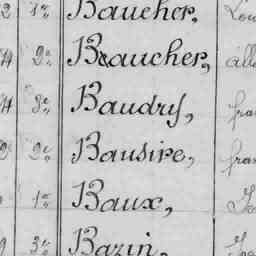 2 1er Baucher, Lou
4 2e Baucher, allé
4 3e Baudry, fra
2 2e Bausire, fran
1er Baux,
3e Bazin,